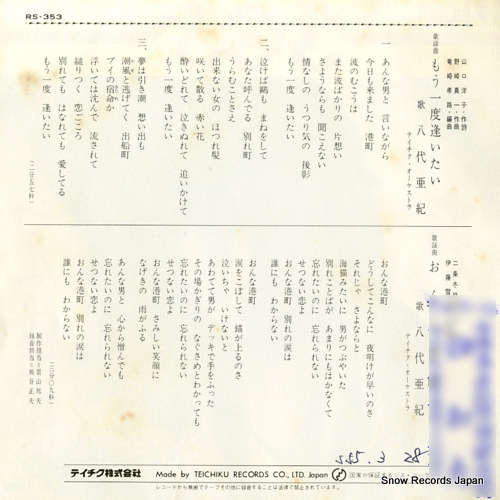 RS-353
歌謡曲
もう一度逢いたい
山口洋子・作詩
野崎真一・作曲
竜崎孝路・編曲
歌 八代亜紀
テイチク・オーケストラ
一、あんな男と 言いながら
今日も来ました 港町
波のむこうは
また波ばかりの 片想い
さようならも 聞こえない
情なしの うつり気の 後影
もう一度 逢いたい
二、泣けば鴎も まねをして
あなた呼んでる 別れ町
うらむことさえ
出来ない女の ほつれ髪
咲いて散る 赤い花
酔いどれて 泣きぬれて 追いかけて
もう一度 逢いたい
三、夢は引き潮 想い出も
潮風と逃げてく 出船町
ブイの宿命か
浮いては沈んで 流されて
縋りつく 恋ごころ
別れても はなれても 愛してる
もう一度 逢いたい
(二分五七秒)
歌謡曲
お
二条冬
伊藤雪
歌 八代亜紀
テイチク・オーケストラ
おんな港町
どうしてこんなに 夜明けが早いのさ
それじゃ さよならと
海猫みたいに 男がつぶやいた
別れことばが あまりにもはかなくて
忘れたいのに 忘れられない
せつない恋よ
おんな港町 別れの涙は
誰にも わからない
おんな港町
涙をこぼして 錨が上るのさ
泣いちゃ いけないと
あわてて男が デッキで手をふった
その場かぎりの なぐさめとわかっても
忘れたいのに 忘れられない
せつない恋よ
おんな港町 さみしい笑顔に
なげきの 雨がふる
あんな男と 心から憎んでも
忘れたいのに 忘れられない
せつない恋よ
おんな港町 別れの涙は
誰にも わからない
(三分〇九秒)
S55. 3. 28
テイチク株式会社 Made by TEICHIKU RECORDS CO., LTD. Japan
レコードから無断でテープその他に録音することは法律で禁じられています。
Snow Records Japan